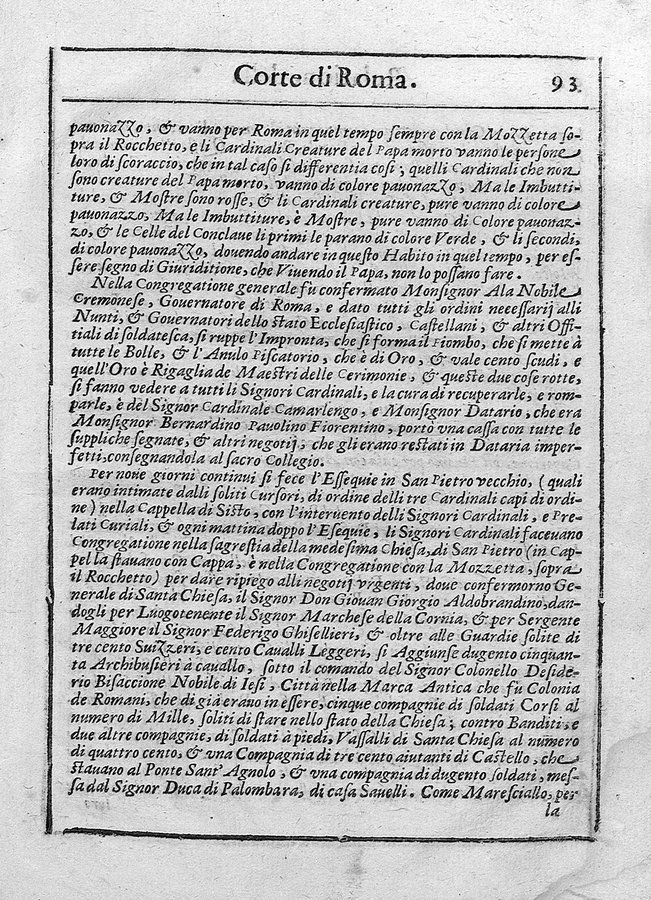 Corte di Roma. 93
pauonazzo, & vanno per Roma in quel tempo sempre con la Mozzetta so-
pra il Rocchetto, e li Cardinali Creature del Papa morto vanno le persone
loro di scoraccio, che in tal caso si differentia cosi; quelli Cardinali che non
sono creature del Papa morto, vanno di colore pauonazzo, Ma le Imbutti-
ture, & Mostre sono rosse, & li Cardinali creature, pure vanno di colore
pauonazzo, Ma le Imbuttiture, è Mostre, pure vanno di Colore pauonaz-
zo, & le Celle del Conclaue li primi le parano di colore Verde, & li secondi,
di colore pauonazzo, douendo andare in questo Habito in quel tempo, per es-
sere segno di Giuriditione, che Viuendo il Papa, non lo possano fare.
Nella Congregatione generale fu confermato Monsignor Ala Nobile
Cremonese, Gouernatore di Roma, e dato tutti gli ordini neeessarij alli
Nunti, & Gouernatori dello stato Ecclesiastico, Castellani, & altri Offi-
tiali di soldatesca, si ruppe l'Impronta, che si forma il Piombo, che si mette à
tutte le Bolle, & l'Anulo Piscatorio, che è di Oro, & vale cento scudi, e
quell'Oro è Rigaglia de Maestri delle Cerimonie, & queste due cose rotte,
si fanno vedere a tutti li Signori Cardinali, e la cura di recuperarle, e rom-
parle, è del Signor Cardinale Camarlengo, e Monsignor Datario, che era
Monsignor Bernardino Pauolino Fiorentino, portò vna cassa con tutte le
suppliche segnate, & altri negotij, che gli erano restati in Dataria imper-
fetti, consegnandola al sacro Collegio.
Per noue giorni continui si fece l'Essequie in San Pietro vecchio, (quali
erano intimate dalli soliti Cursori, di ordine delli tre Cardinali capi di ordi-
ne) nella Cappella di Sisto, con l'interuento delli Signori Cardinali, e Pre-
lati Curiali, & ogni mattina doppo l'Esequie, li Signori Cardinali faceuano
Congregatione nella sagrestia della medesima Chiesa, di San Pietro (in Cap-
pella stauano con Cappa, e nella Congregatione con la Mozzetta, sopra
il Rocchetto) per dare ripiego alli negotij vrgenti, doue confermorno Ge-
nerale di Santa Chiesa, il Signor Don Giouan Giorgio Aldobrandino, dan-
dogli per Luogotenente il Signor Marchese della Cornia, & per Sergente
Maggiore il Signor Federigo Ghisellieri, & oltre alle Guardie solite di
tre cento Suizzeri, e cento Caualli Leggeri, si Aggiunse dugento cinquan-
ta Archibusieri à cauallo, sotto il comando del Signor Colonello Deside-
rio Bisaccione Nobile di Iesi, Città nella Marca Antica che fù Colonia
de Romani, che di già erano in essere, cinque compagnie di soldati Corsi al
numero di Mille, soliti di stare nello stato della Chiesa; contro Banditi, e
due altre compagnie, di soldati à piedi, Vassalli di Santa Chiesa al numero
di quattro cento, & vna Compagnia di tre cento aiutanti di Castello, che
stauano al Ponte Sant' Agnolo, & vna compagnia di dugento soldati, mes-
sa dal Signor Duca di Palombara, di casa Sauelli. Come Maresciallo, per
la